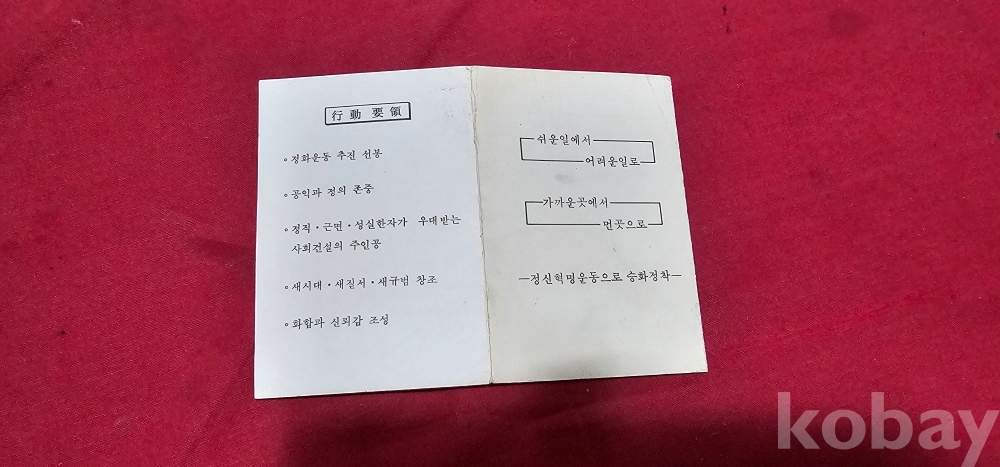 行動要領
정화운동 추진 선봉
공익과 정의 존중
정직・근면・성실한자가 우대받는
사회건설의 주인공
새시대・새질서・새규범 창조
화합과 신뢰감 조성
쉬운일에서
어려운일로
가까운곳에서
먼곳으로
—정신혁명운동으로 승화정착—
kobay